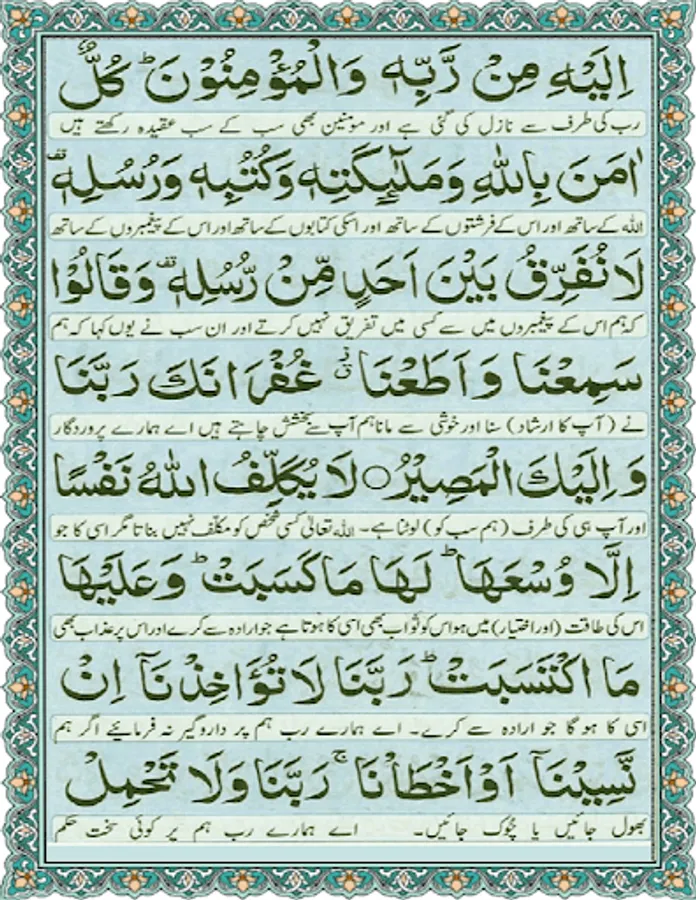 اِلَيْهِ مِنْ رَّبِّهٖ وَالْمُؤْمِنُوْنَ ؕ كُلٌّ
رب کی طرف سے نازل کی گئی ہے اور مومنین بھی سب کے سب عقیدہ رکھتے ہیں
اٰمَنَ بِاللّٰهِ وَمَلٰٓئِكَتِهٖ وَكُتُبِهٖ وَرُسُلِهٖ ۟
اللہ کے ساتھ اور اس کے فرشتوں کے ساتھ اور اسکی کتابوں کے ساتھ اور اس کے پیغمبروں کے ساتھ
لَا نُفَرِّقُ بَيْنَ اَحَدٍ مِّنْ رُّسُلِهٖ ۟ وَقَالُوْا
کہ ہم اس کے پیغمبروں میں سے کسی میں تفریق نہیں کرتے اور ان سب نے یوں کہا کہ ہم
سَمِعْنَا وَاَطَعْنَا ۫ غُفْرَانَكَ رَبَّنَا
نے (آپ کا ارشاد) سنا اور خوشی سے مانا ہم آپ سے بخشش چاہتے ہیں اے ہمارے پروردگار
وَاِلَيْكَ الْمَصِيْرُ ○ لَا يُكَلِّفُ اللّٰهُ نَفْسًا
اور آپ ہی کی طرف (ہم سب کو) لوٹنا ہے۔ اللہ تعالیٰ کسی شخص کو مکلف نہیں بناتا مگر اسی کا جو
اِلَّا وُسْعَهَا ؕ لَهَا مَا كَسَبَتْ ؕ وَعَلَيْهَا
اس کی طاقت (اور اختیار) میں ہو اس کو ثواب بھی اسی کا ہوتا ہے جو ارادہ سے کرے اور اس پر عذاب بھی
مَا اكْتَسَبَتْ ؕ رَبَّنَا لَا تُؤَاخِذْنَاۤ اِنْ
اسی کا ہو گا جو ارادہ سے کرے۔ اے ہمارے رب ہم پر داروگیر نہ فرمائیے اگر ہم
نَّسِيْنَاۤ اَوْ اَخْطَاْنَا ۚ رَبَّنَا وَلَا تَحْمِلْ
بھول جائیں یا چوک جائیں۔ اے ہمارے رب ہم پر کوئی سخت حکم